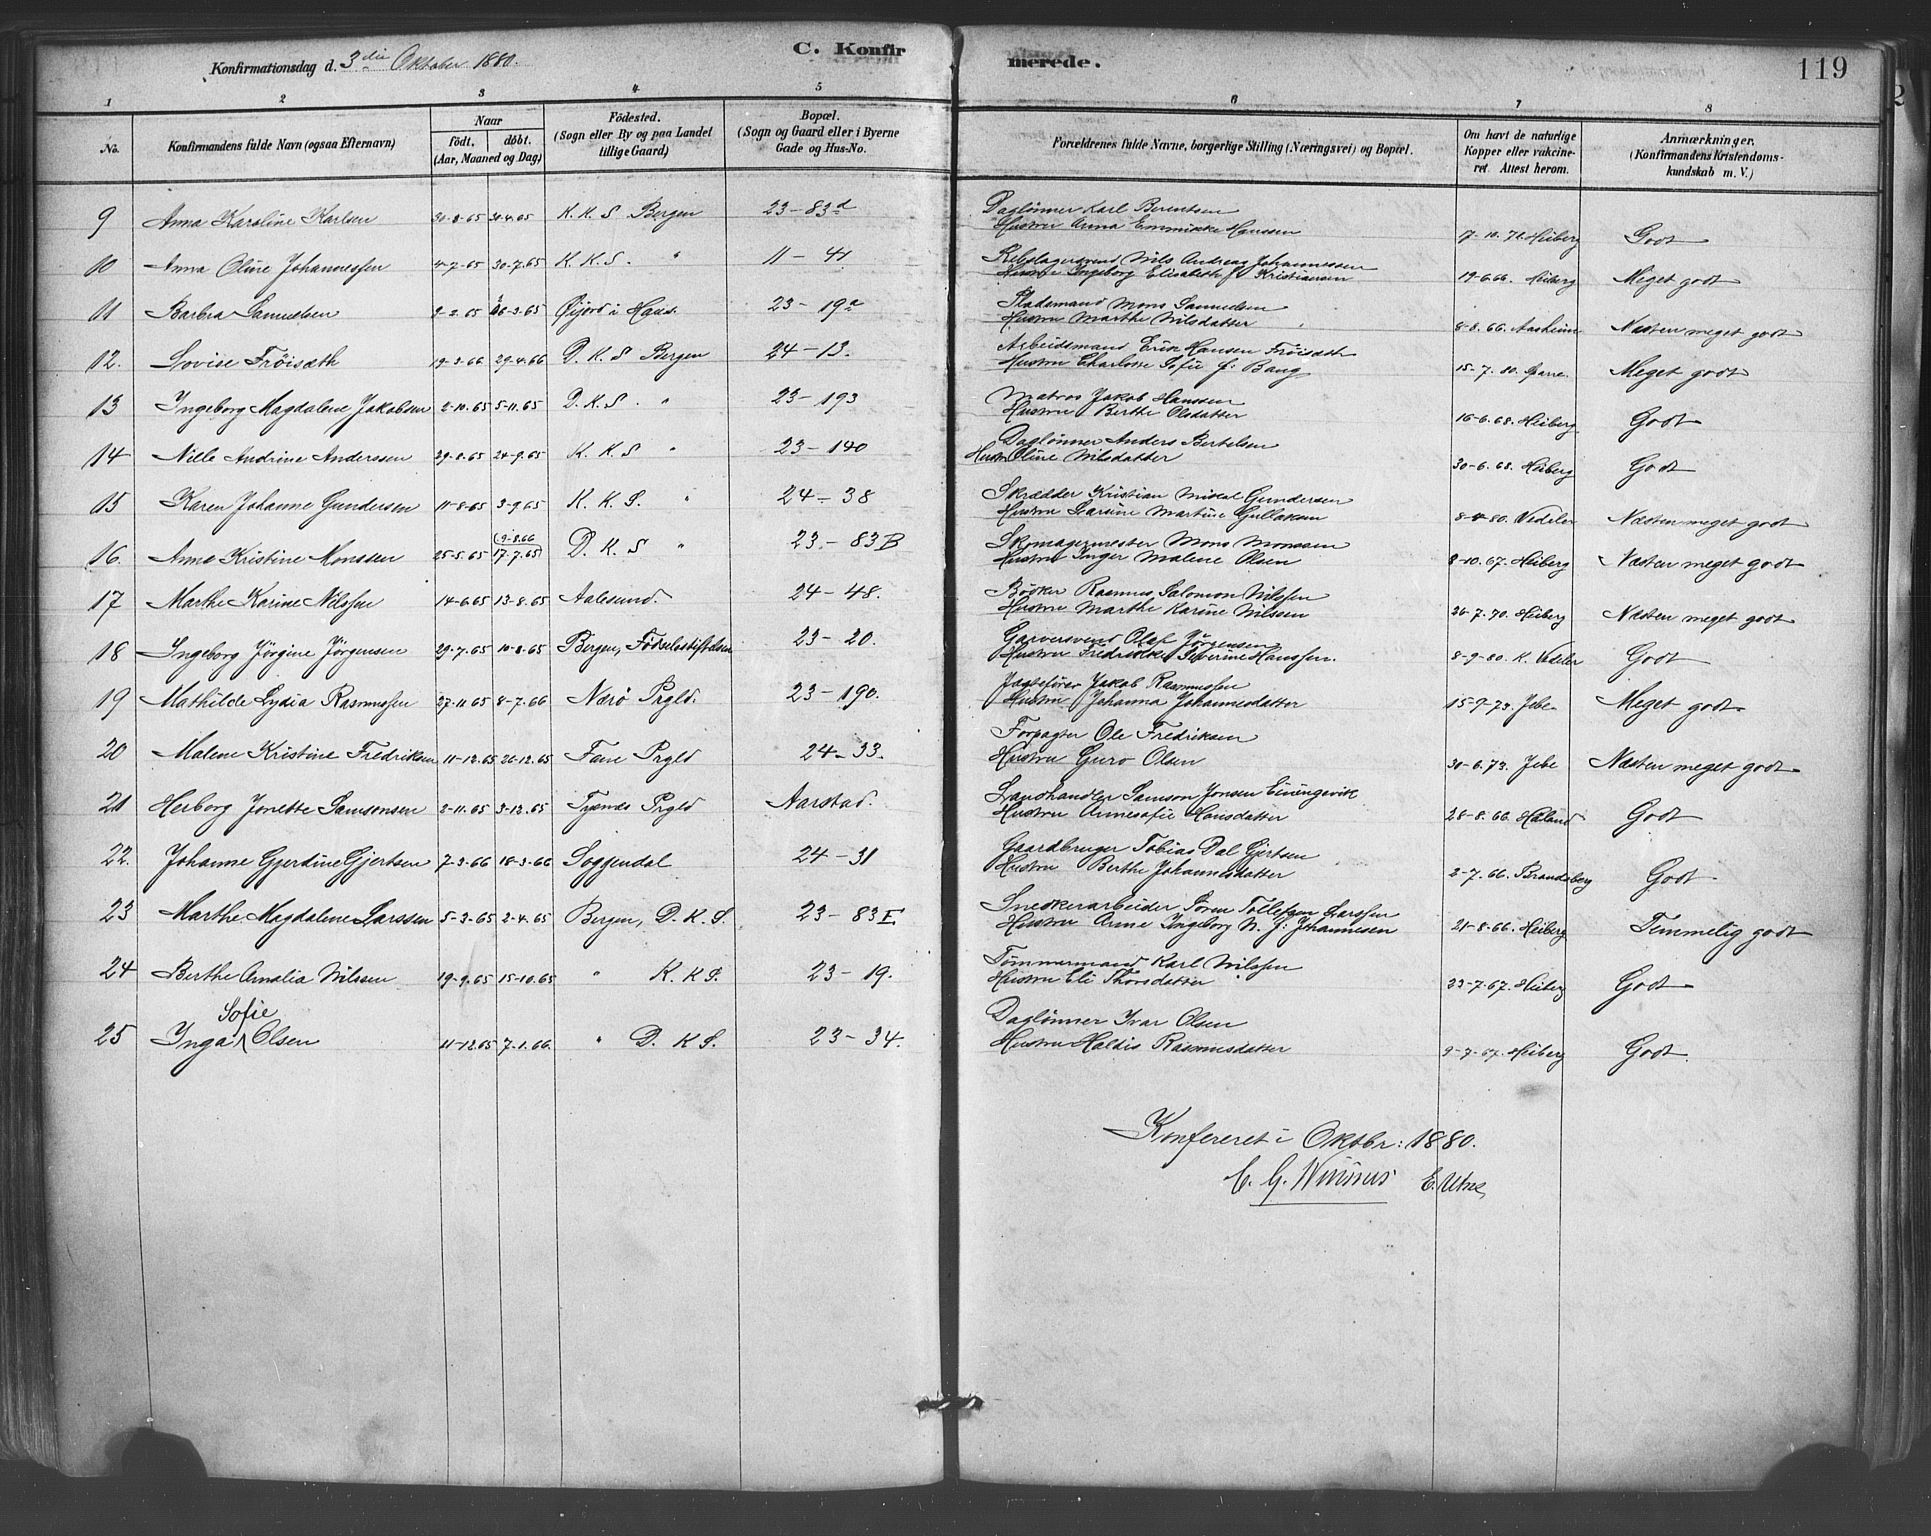 C. Konfir merede. 119
Konfirmationsdag d. 3die Oktober 1880.
1 2 3 4 5 6 7 8
No. Konfirmandens fulde Navn (ogsaa Efternavn) Naar født, døbt. (Aar, Maaned og Dag) Fødested. (Sogn eller By og paa Landet tillige Gaard.) Bopæl. (Sogn og Gaard eller i Byerne Gade og Hus-No. Forældrenes fulde Navne, borgerlige Stilling (Næringsvei) og Bopæl. Om havt de naturlige Kopper eller vakcineret. Attest herom. Anmærkninger. (Konfirmandens Kristendomskundskab m. V.)
9 Anna Karoline Karlsen 30-3-65 30-4-65 K. K. S Bergen 23-83d Daglønner Karl Berentsen
Hustru Anna Emmikke Hanssen 7-10-72 Heiberg Godt
10 Anna Oline Johannessen 4-7-65 30-7.65 K. K. S. " 11-41 Rebslagersvend Nils Andreas Johannessen
Hustru Ingeborg Elisabeth f. Kristiansen 19-6.66. Heiberg Meget godt
11 Barbra Samuelsen 2-2 65 26-3.65 Øijord i Haus. 23-19a Pladsmand Mons Samuelsen
Hustru Marthe Nilsdatter 8-8.66 Aasheim Næsten meget godt
12. Lovise Frøisæth 19-3-66 29.4.66 D. K. S Bergen 24-13. Arbeidsmand Erik Hansen Frøisæth
Hustru Charlotte Sofie f: Bang 15-7.80. Sparre Meget godt
13 Ingeborg Magdalene Jakobsen 2-10.65 5-11.65 D. K. S. " 23-193 Matros Jakob Hanssen
Hustru Berthe Olsdatter 16-6.68. Heiberg Godt
14 Nille Andrine Anderssen 29-8.65 24-9.65 K. K. S " 23-140 Daglønner Anders Bertelsen
Hustru Oline Nilsdatter 30-6.68. Heiberg Godt
15 Karen Johanne Gundersen 11-8-65 3-9.65 K. K. S. " 24-38 Skrædder Kristian Mikal Gundersen
Hustru Larsine Martine Gullaksen 8-4-80. Vedeler Næsten meget godt
16. Anna Kristine Monssen 25-5.65 (9-8.66 17.7.65) D. K. S " 23-83B Skomagermester Mons Monssen
Hustru Inger Malene Olsen 8-10.67. Heiberg Næsten meget godt
17 Marthe Karine Nilssen 14-6.65 13-8.65 Aalesund. 24-48. Bødker Rasmus Salomon Nilssen
Hustru Marthe Karine Nilssen 26-7.70. Heiberg Næsten meget godt
18 Ingeborg Jørgine Jørgensen 29-7.65 10-8-65 Bergen, Fødselsstiftelsen 23-20. Garversvend Olaf Jørgensen
Hustru Fredrikke Severine Hanssen. 8-9-80. K. Vedeler Godt
19 Mathilde Lydia Rasmussen 27-11 65 8-7.66 Nærø Prgld. 23-190. Jægtefører Jakob Rasmussen
Hustru Johanna Johannesdatter 15-9-73. Jebe Meget godt
20 Malene Kristine Fredriksen 11-12.65 26-12.65 Fane Prgld 24-33. Forpagter Ole Fredriksen
Hustru Guro Olsen 30-6.73. Jebe Næsten meget godt
21 Herborg Jonette Samsonsen 2-11.65 3-12.65 Tysnes Prgld Aarstad. Landhandler Samson Jonsen Einingevik
Hustru Annesofie Hansdatter 28-8.66. Haaland Godt
22. Johanne Gjerdine Gjertsen 7-2.66 18-3.66 Soggendal 24-31 Gaardbruger Tobias Dal Gjertsen
Hustru Berthe Johannesdatter 2-7.66. Brandsberg Godt
23 Marthe Magdalene Larssen 5-3.65 2-4.65 Bergen, D. K. S. 23-83E Snedkerarbeider Søren Tollefsen Larssen
Hustru Anne Ingeborg N. f: Johannesen 21-8.66. Heiberg Temmelig godt
24 Berthe Amalia Nilssen 19-9.65 15-10.65 " K. K. S. 23-19. Tømmermand Karl Nilssen
Hustru Eli Thorsdatter 23-7.67. Heiberg Godt
Sofie
25 Inga Olsen 11-12.65 7-1.66. " D. K S. 23-34. Daglønner Ivar Olsen
Hustru Haldis Rasmusdatter 9-7-67. Heiberg Godt.
Konfereret i Oktbr: 1880.
C. G. E. Utne,